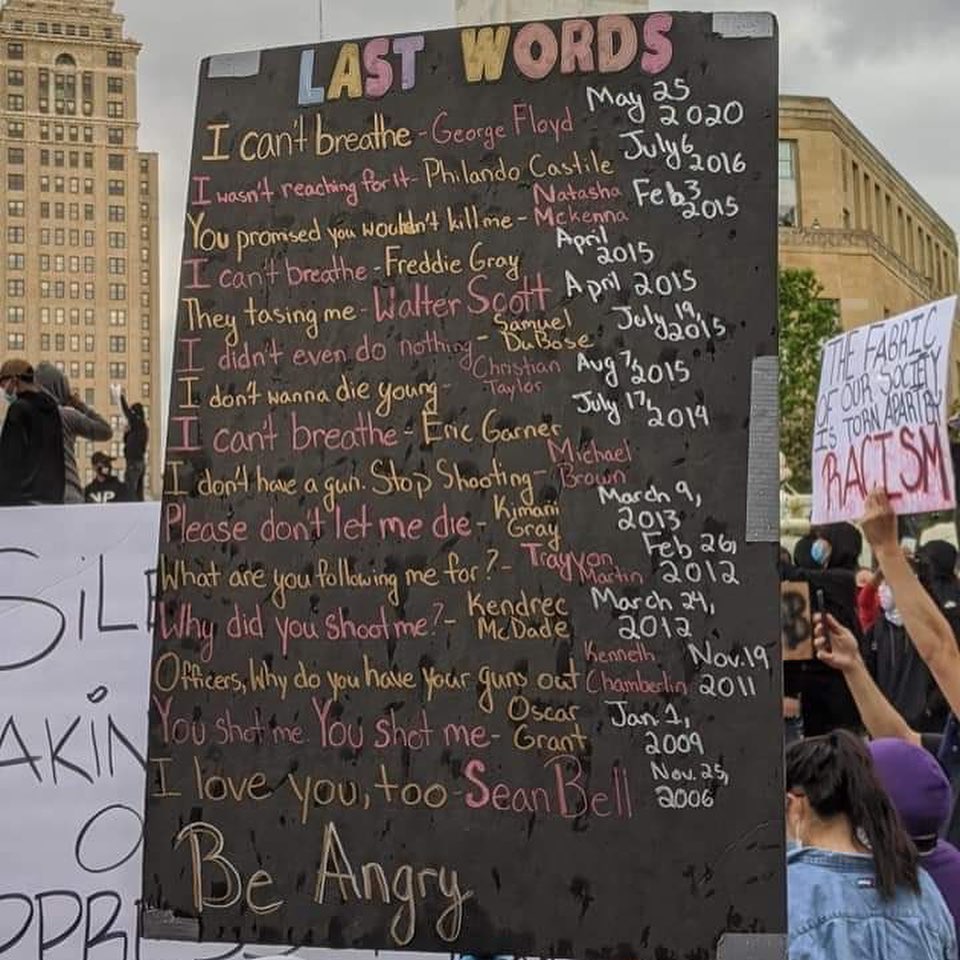 LAST WORDS
I can't breathe - George Floyd May 25 2020
I wasn't reaching for it - Philando Castile July 6 2016
You promised you wouldn't kill me - Natasha Mckenna Feb 3 2015
I can't breathe - Freddie Gray April 2015
They tasing me - Walter Scott April 2015
I didn't even do nothing - Samuel DuBose July 19, 2015
I don't wanna die young - Christian Taylor Aug 7, 2015
I can't breathe - Eric Garner July 17, 2014
I don't have a gun. Stop Shooting - Michael Brown
Please don't let me die - Kimani Gray March 9, 2013
What are you following me for? - Trayvon Martin Feb 26, 2012
Why did you shoot me? - Kendrec McDade March 24, 2012
Officers, Why do you have your guns out Kenneth Chamberlin Nov. 19 2011
You shot me You shot me - Oscar Grant Jan 1, 2009
I love you, too - Sean Bell Nov. 25, 2006
Be Angry
THE FABRIC
OF OUR SOCIETY
IS TORN APART BY
RACISM
SiLE
AKiN
O
PPRESS